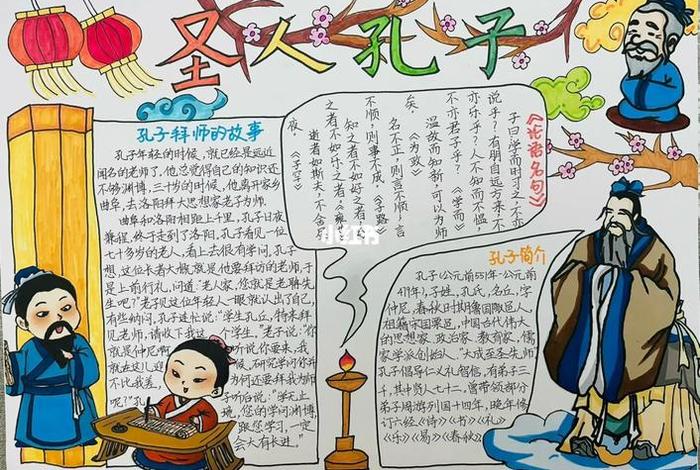 圣人孔子
孔子拜师的故事
孔子年轻的时候，就已经是远近
闻名的老师了，他总觉得自己的知识还
不够渊博，三十岁的时候，他离开家乡
曲阜，去洛阳拜大思想家老子为师。
曲阜和洛阳相距上千里，孔子日夜
兼程，终于走到了洛阳。孔子看见一位
七十多岁的老人，看上去很有学问，孔子
想，这位长者大概就是他要拜访的老师，于
是上前行礼，问道：“老人家，您就是老聃先
生吧？”老子见这位年轻人一眼就认出了自己，
有些纳闷，孔子连忙说：“学生孔丘，特来拜
见老师，请收下我这个学生。”老子说：“你
就是仲尼啊，
就在这儿迎
不比我差，
为何还要拜我为师
呢？”孔
会大有长进。”
《论语名句》
子曰：学而时习之，不亦
说乎？有朋自远方来，不
亦乐乎？人不知而不愠，
不亦君子乎？《学而》
温故而知新，可以为师
矣。《为政》
名不正，则言不顺；言
不顺，则事不成。《子路》
知之者不如好之者，好
之者不如乐之者。《雍
逝者如斯夫，不舍昼
夜。《子罕》
小红书
孔子简介
孔子（公元前551年-公元前
479年），子姓，孔氏，名丘，字
仲尼，春秋时期鲁国陬邑人，
祖籍宋国栗邑，中国古代伟大
的思想家、政治家、教育家，儒
家学派创始人、“大成至圣先师”。
孔子倡导仁义礼智信，有弟子三
千，其中贤人七十二，曾带领部分
弟子周游列国十四年，晚年修
订六经《诗》《书》《礼》
《乐》《易》《春秋》